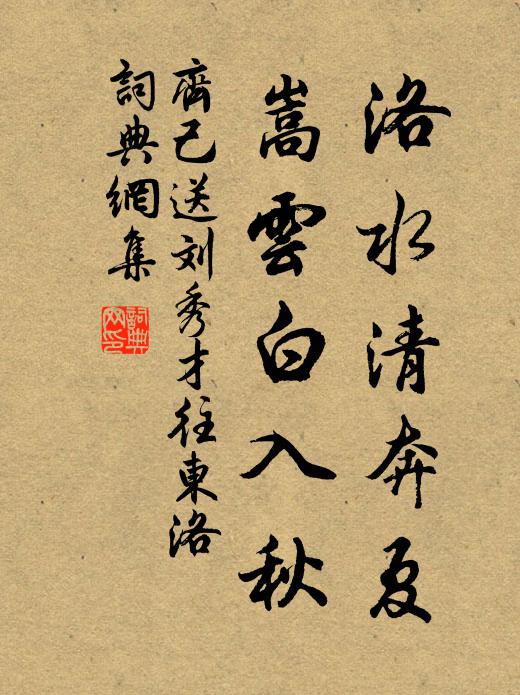 洛水清奔夏
嵩雲白入秋
齊己送刘秀才往東洛
詞典網集
詞典
网印